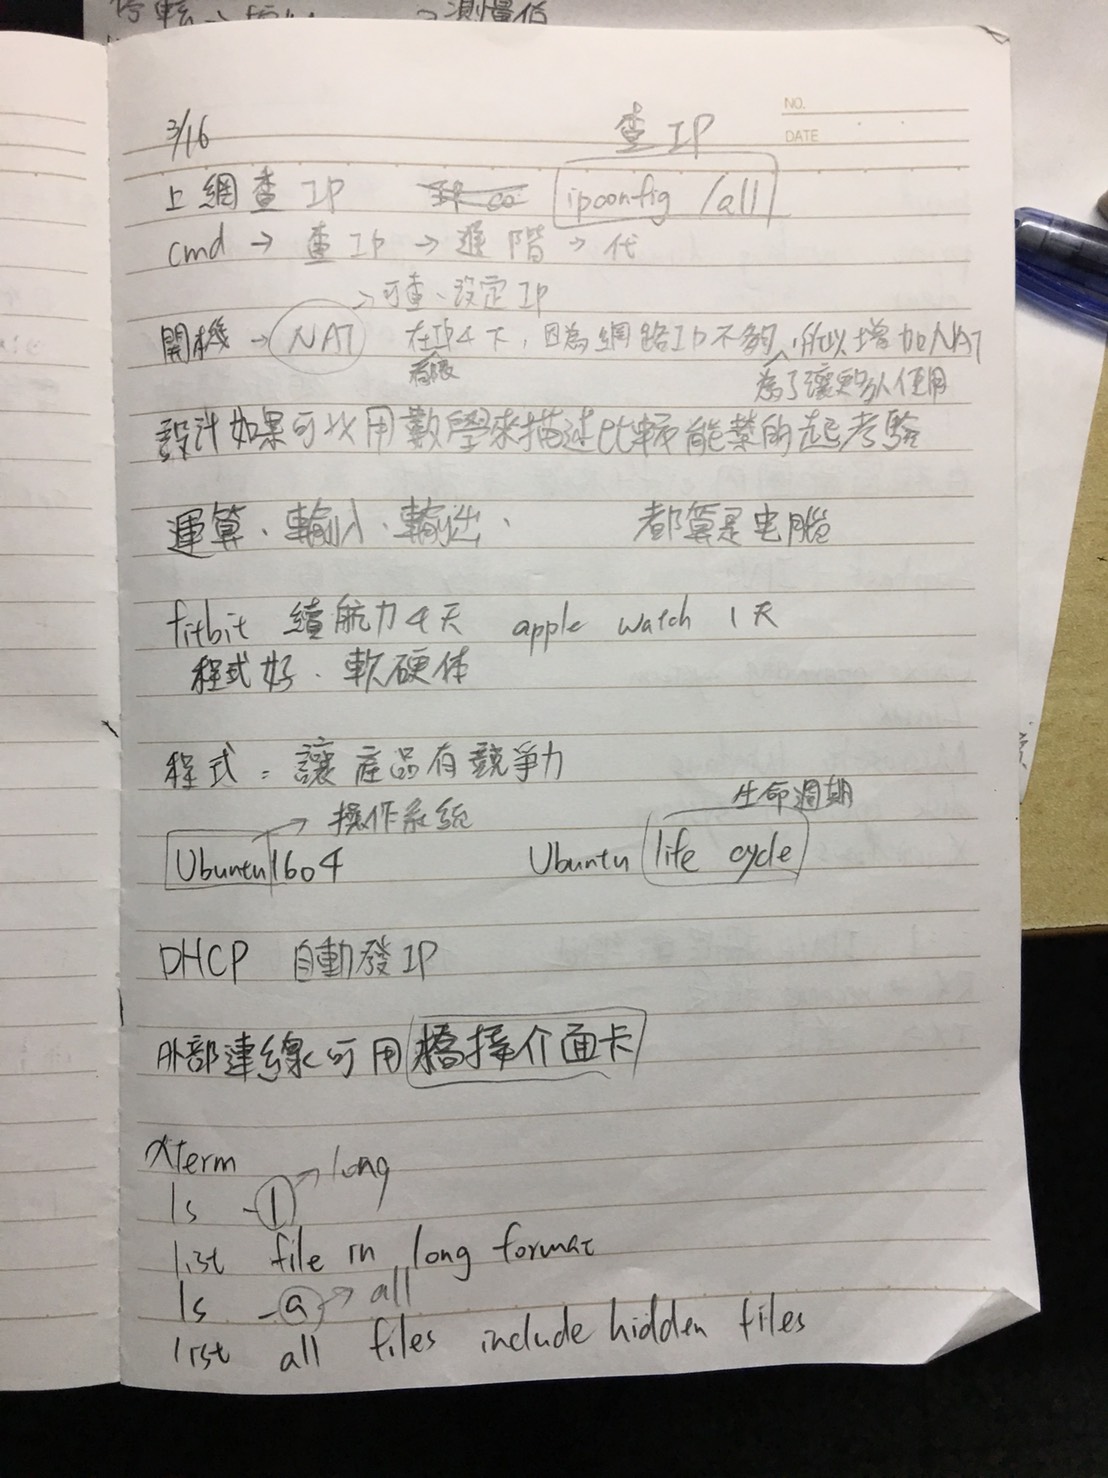 測量值
NO.
DATE
3/16
查IP
上網查IP ipconfig /all
cmd → 查IP → 進階 → 代
→可查、設定IP
開機 → NAT 在IP4下，因為網路IP不夠，所以增加NAT
有限 為了讓更多人使用
設計如果可以用數學來描述比較能禁的起考驗
運算、輸入、輸出、 都算是电腦
fitbit 續航力4天 apple watch 1天
程式好、軟硬体
程式：讓產品有競爭力
→ 操作系統 生命週期
Ubuntu 1604 Ubuntu life cycle
DHCP 自動發IP
外部連線可用橋接介面卡
xterm
→ long
ls -l
list file in long format
ls -a → all
list all files include hidden files